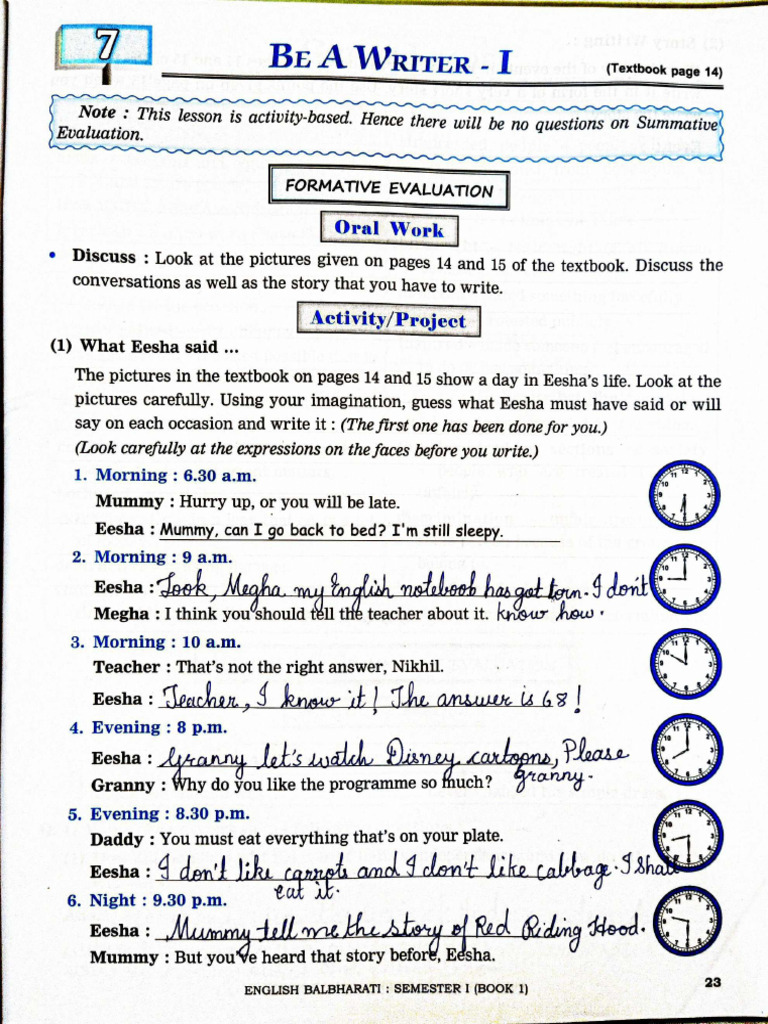 7
BE A WRITER - I
(Textbook page 14)
Note : This lesson is activity-based. Hence there will be no questions on Summative
Evaluation.
FORMATIVE EVALUATION
Oral Work
• Discuss : Look at the pictures given on pages 14 and 15 of the textbook. Discuss the
conversations as well as the story that you have to write.
Activity/Project
(1) What Eesha said ...
The pictures in the textbook on pages 14 and 15 show a day in Eesha's life. Look at the
pictures carefully. Using your imagination, guess what Eesha must have said or will
say on each occasion and write it : (The first one has been done for you.)
(Look carefully at the expressions on the faces before you write.)
1. Morning : 6.30 a.m.
Mummy : Hurry up, or you will be late.
Eesha : Mummy, can I go back to bed? I'm still sleepy.
2. Morning : 9 a.m.
Eesha : Look, Megha my English notebook has got torn. I don't
Megha : I think you should tell the teacher about it. know how.
3. Morning : 10 a.m.
Teacher : That's not the right answer, Nikhil.
Eesha : Teacher, I know it! The answer is 68!
4. Evening : 8 p.m.
Eesha : Granny let's watch Disney cartoons, Please
Granny : Why do you like the programme so much? granny.
5. Evening : 8.30 p.m.
Daddy : You must eat everything that's on your plate.
Eesha : I don't like carrots and I don't like cabbage. I shall
eat it.
6. Night : 9.30 p.m.
Eesha : Mummy tell me the story of Red Riding Hood.
Mummy : But you've heard that story before, Eesha.
ENGLISH BALBHARATI : SEMESTER I (BOOK 1)
23